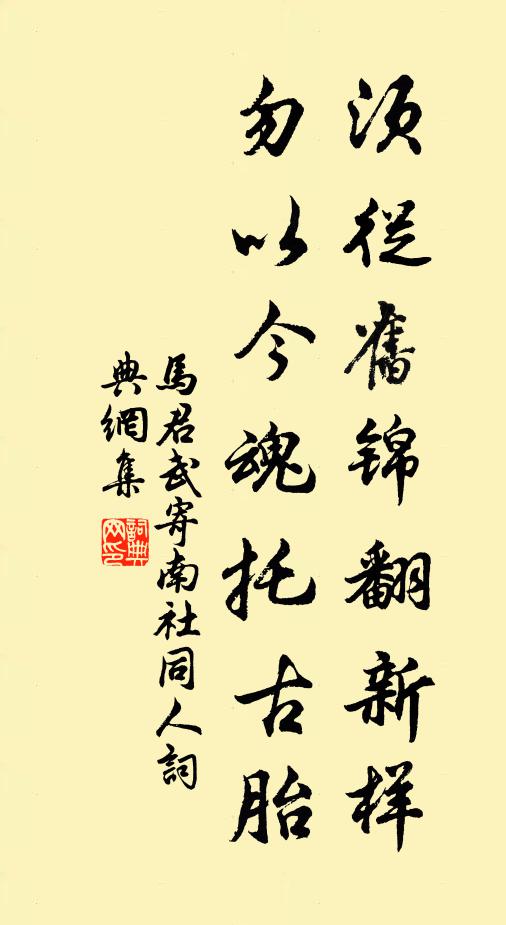 须從舊锦翻新样
勿以今魂托古胎
馬君武寄南社同人詞
典網集
詞典网印